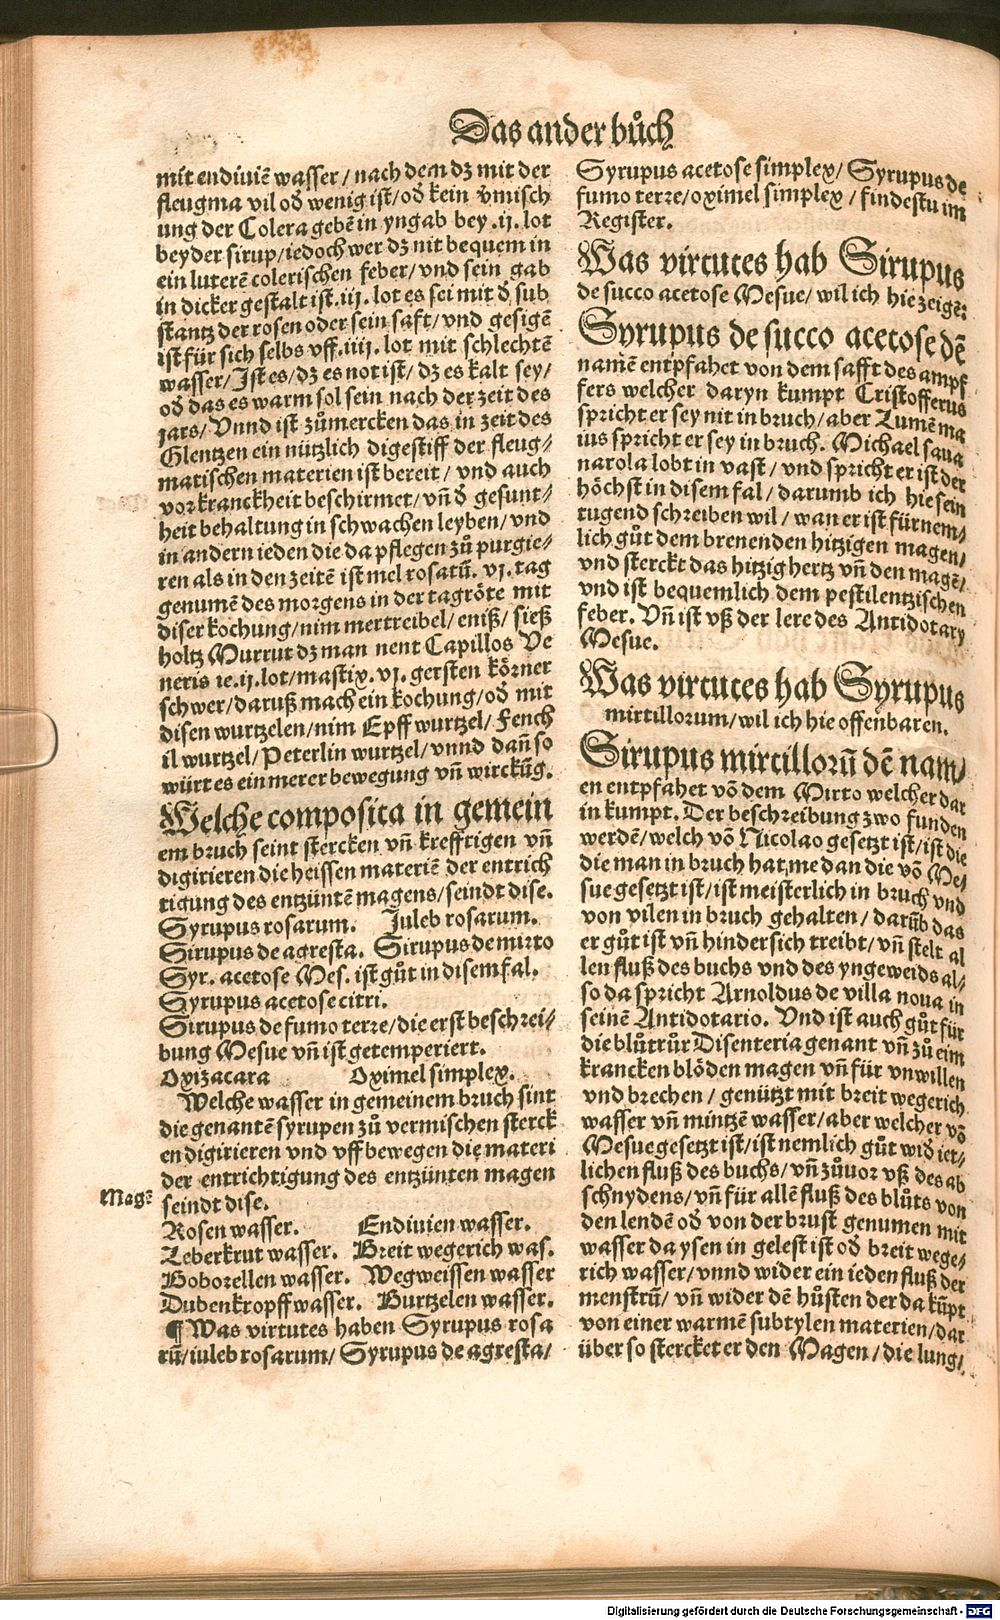 Das ander bůch
mit endiuiē wasser / nach dem dz mit der
fleugma vil od̕ wenig ist / od̕ kein v̕misch
ung der Colera geben in yngab bey .ij. lot
beyder sirup / iedoch wer dz nit bequem in
ein luterē colerischen feber / vnd sein gab
in dicker gestalt ist .iij. lot es sei mit d̕ sub
stantz der rosen oder sein saft / vnd gesigē
ist für sich selbs vff .iiij. lot mit schlechtē
wasser / Ist es / dz es not ist / dz es kalt sey /
od̕ das es warm sol sein nach der zeit des
jars / Vnnd ist zůmercken das in zeit des
Glentzen ein nützlich digestiff der fleug⸗
matischen materien ist bereit / vnd auch
vor kranckheit beschirmet / vñ d̕ gesunt⸗
heit behaltung in schwachen leyben / vnd
in andern ieden die da pflegen zů purgie⸗
ren als in den zeitē ist mel rosatū. vj. tag
genumē des morgens in der tagröte mit
diser kochung / nim mertreibel / eniß / sieß
holtz Murrut dz man nent Capillos Ve
neris ie .ij. lot / mastix. vj. gersten körner
schwer / daruß mach ein kochung / od̕ mit
disen wurtzelen / nim Epff wurtzel / Fench
il wurtzel / Peterlin wurtzel / vnnd dañ so
würt es ein merer bewegung vñ wirckūg.
Welche composita in gemein
em bruch seint stercken vñ krefftigen vñ
digirieren die heissen materiē der entrich
tigung des entzüntē magens / seindt dise.
Syrupus rosarum. Juleb rosarum.
Sirupus de agresta. Sirupus de mirto
Syr. acetose Mes. ist gůt in disem fal.
Syrupus acetose citri.
Sirupus de fumo terre / die erst beschrei⸗
bung Mesue vñ ist getemperiert.
Oxizacara Oximel simplex.
Welche wasser in gemeinem bruch sint
die genantē syrupen zů vermischen sterck
en digirieren vnd vff bewegen die materi
der entrichtigung des entzünten magen
Magē
seindt dise.
Rosen wasser. Endiuien wasser.
Leberkrut wasser. Breit wegerich was.
Boborellen wasser. Wegweissen wasser
Dubenkropff wasser. Burtzelen wasser.
¶ Was virtutes haben Syrupus rosa
rū / iuleb rosarum / Syrupus de agresta /
Syrupus acetose simplex / Syrupus de
fumo terre / oximel simplex / findestu im
Register.
Was virtutes hab Sirupus
de succo acetose Mesue / wil ich hie zeigē:
Syrupus de succo acetose dē
namē entpfahet von dem safft des ampf
fers welcher daryn kumpt Cristofferus
spricht er sey nit in bruch / aber Lumē ma
ius spricht er sey in bruch. Michael saua
narola lobt in vast / vnd spricht er ist der
höchst in disem fal / darumb ich hie sein
tugend schreiben wil / wan er ist fürnem⸗
lich gůt dem brenenden hitzigen magen /
vnd sterckt das hitzig hertz vñ den magē /
vnd ist bequemlich dem pestilentzischen
feber. Vñ ist vß der lere des Antidotary
Mesue.
Was virtutes hab Syrupus
mirtillorum / wil ich hie offenbaren.
Sirupus mirtillorū dē nam /
en entpfahet vō dem Mirto welcher dar
in kumpt. Der beschreibung zwo funden
werdē / welch vō Nicolao gesetzt ist / ist die
die man in bruch hat, me dan die vō Me⸗
sue gesetzt ist / ist meisterlich in bruch vnd
von vilen in bruch gehalten / darūb das
er gůt ist vñ hindersich treibt / vñ stelt al
len fluß des buchs vnd des yngeweids al⸗
so da spricht Arnoldus de villa noua in
seinē Antidotario. Vnd ist auch gůt für
die blůtrůr Disenteria genant vñ zů eim
krancken blöden magen vñ für vnwillen
vnd brechen / genützt mit breit wegerich
wasser vñ mintzē wasser / aber welcher vō
Mesue gesetzt ist / ist nemlich gůt wid̕ iet⸗
lichen fluß des buchs / vñ zůuor vß des ab
schnydens / vñ für allē fluß des blůts von
den lendē od̕ von der brust genumen mit
wasser da ysen in gelest ist od̕ breit wege⸗
rich wasser / vnnd wider ein ieden fluß der
menstrū / vñ wider dē hůsten der da kūpt
von einer warmē subtylen materien / dar
über so stercket er den Magen / die lung /
Digitalisierung gefördert durch die Deutsche Forschungsgemeinschaft - DFG